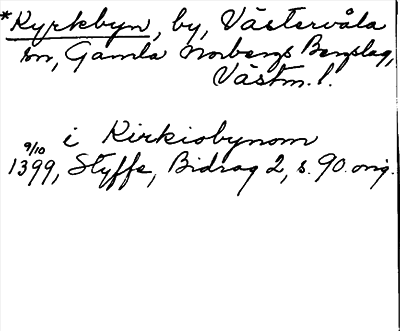 *Kyrkbyn, by, Västervåla
sn, Gamla Norbergs Bergslag,
Västm. l.
i Kirkiobynom
9/10
1399, Styffe, Bidrag 2, s. 90. orig.